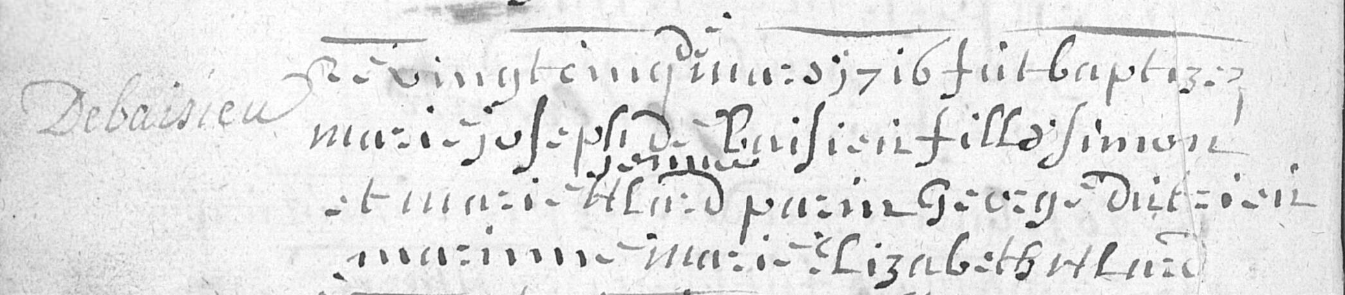 Debaisieu
Le vingt cinq de mars 1716 fut baptizez
marie joseph de Baisieu fill d simon
et marie jenne Alard parin George dutrieu
marinne marie Elizabeth Alard